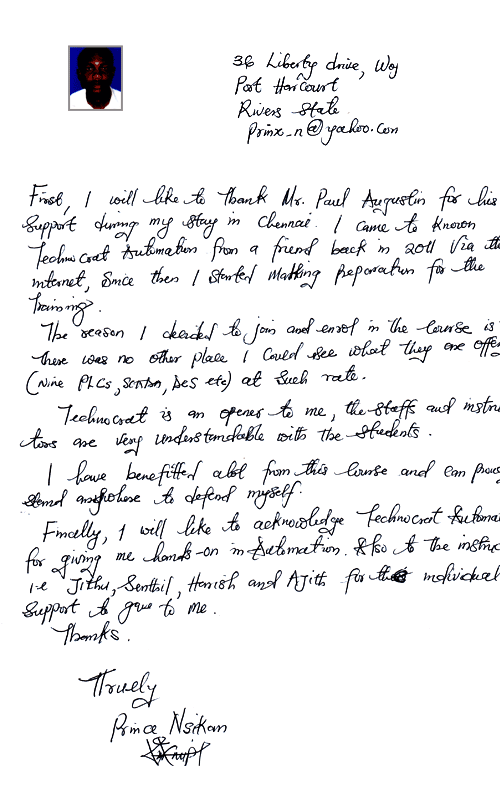 36 Liberty drive, Woj
Port Harcourt
Rivers State.
prinx_n@yahoo.com
First, I will like to thank Mr. Paul Augustin for his
support during my stay in Chennai. I came to known
Technocrat Automation from a friend back in 2011 via the
internet, Since then I started making preparation for the
training.
The reason I decided to join and enrol in the course is
there was no other place I could see what they are offe
(Nine PLCs, SCADA, DCS etc) at such rate.
Technocrat is an opener to me, the staffs and instru
tors are very understandable with the students.
I have benefitted alot from this course and can prou
stand anywhere to defend myself.
Finally, I will like to acknowledge Technocrat Automa
for giving me hands-on in Automation. Also to the instruc
i.e Jithu, Senthil, Harish and Ajith for individual
support to gave to me.
Thanks.
Truely
Prince Nsikan